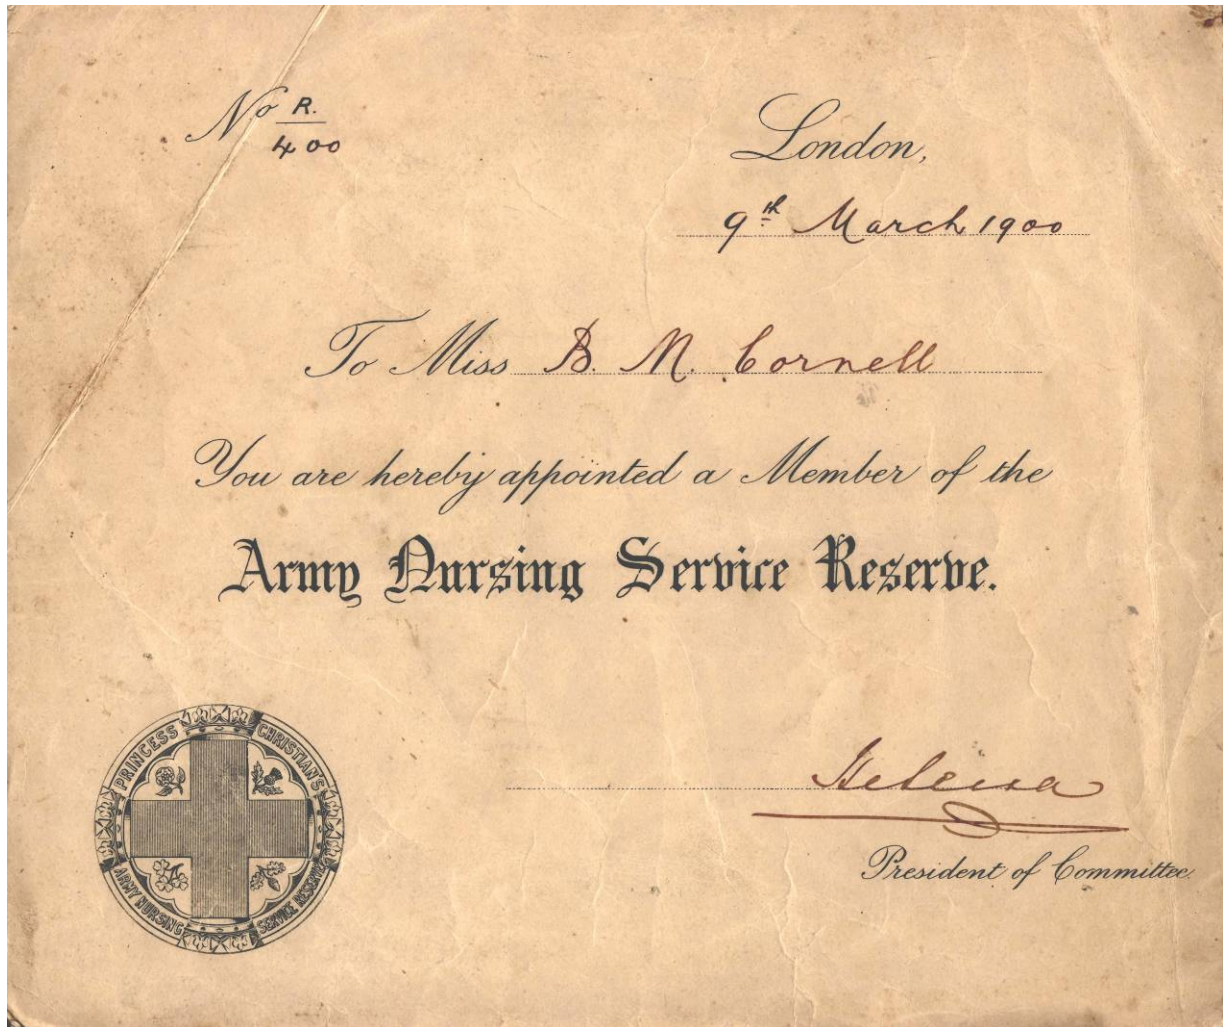 No R.
400
London,
9th March 1900
To Miss B. M. Cornell
You are hereby appointed a Member of the
Army Nursing Service Reserve.
PRINCESS CHRISTIAN'S
ARMY NURSING SERVICE RESERVE
Helena
President of Committee.